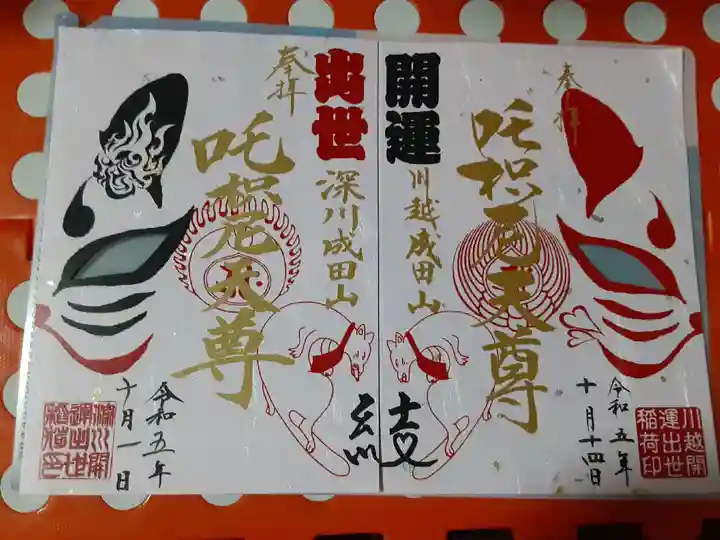 奉拝
開運
川越成田山
吒枳尼天尊
令和五年
十月十四日
川越開
運出世
稲荷印
奉拝
出世
深川成田山
吒枳尼天尊
令和五年
十月一日
深川開
運出世
稲荷印